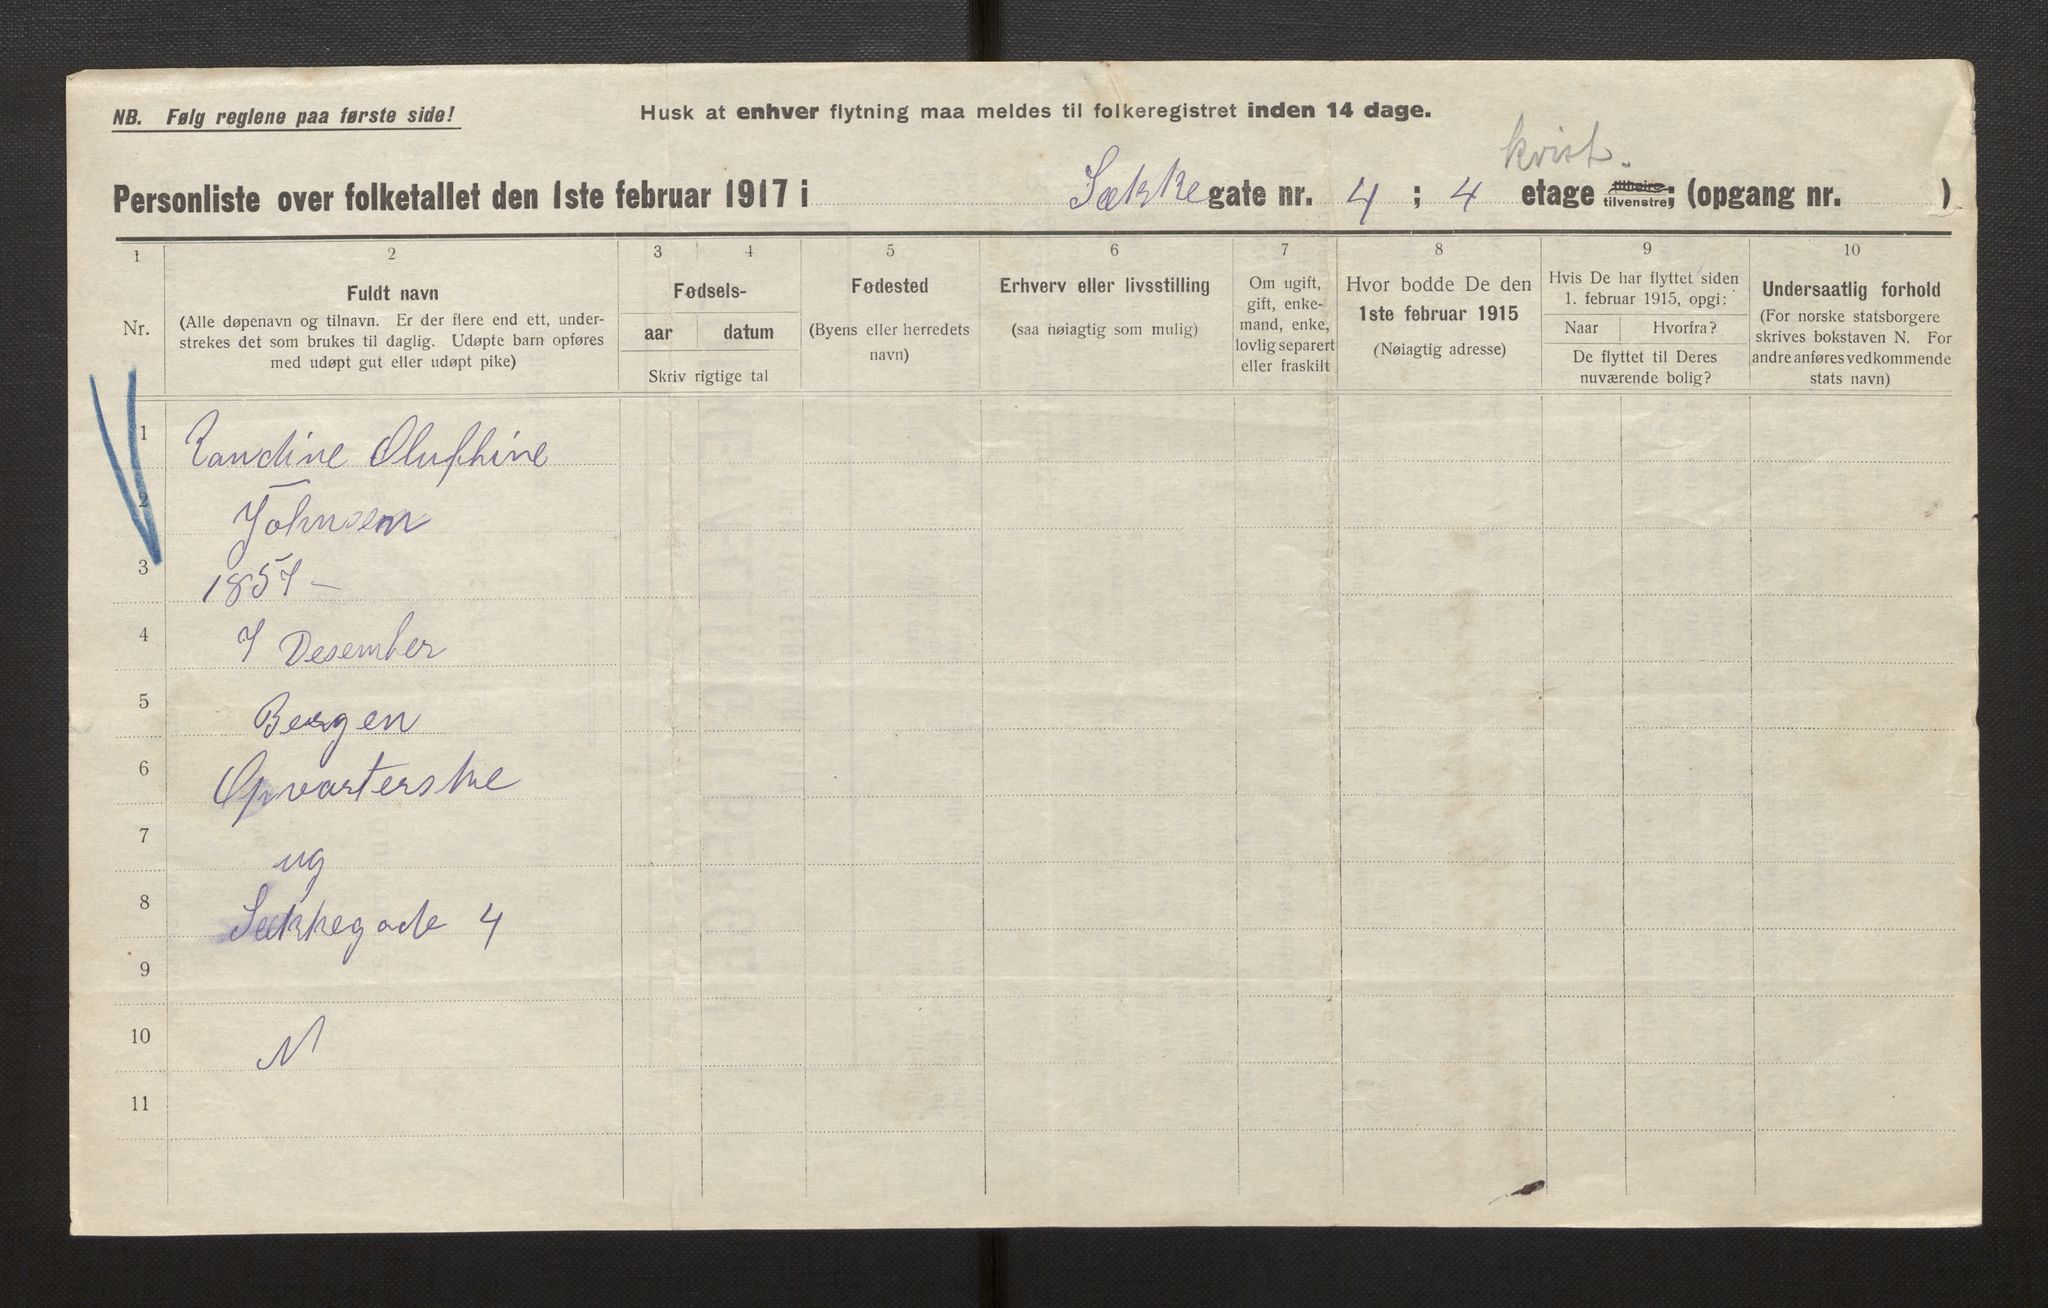 NB. Følg reglene paa første side!
Husk at enhver flytning maa meldes til folkeregistret inden 14 dage.
kvist.
Personliste over folketallet den 1ste februar 1917 i Sækkegate nr. 4 ; 4 etage tilhøire tilvenstre; (opgang nr. )
1 2 3 4 5 6 7 8 9 10
Nr.
Fuldt navn
(Alle døpenavn og tilnavn. Er der flere end ett, under-
strekes det som brukes til daglig. Udøpte barn opføres
med udøpt gut eller udøpt pike)
Fødsels-
aar datum
Skriv rigtige tal
Fødested
(Byens eller herredets
navn)
Erhverv eller livsstilling
(saa nøiagtig som mulig)
Om ugift,
gift, enke-
mand, enke,
lovlig separert
eller fraskilt
Hvor bodde De den
1ste februar 1915
(Nøiagtig adresse)
Hvis De har flyttet siden
1. februar 1915, opgi:
Naar Hvorfra?
De flyttet til Deres
nuværende bolig?
Undersaatlig forhold
(For norske statsborgere
skrives bokstaven N. For
andre anføres vedkommende
stats navn)
1 Randine Oluffine
2 Johnsen
3 1857 –
4 7 Desember
5 Bergen
6 Opvarterske
7 ug
8 Sækkegade 4
9
10 N
11